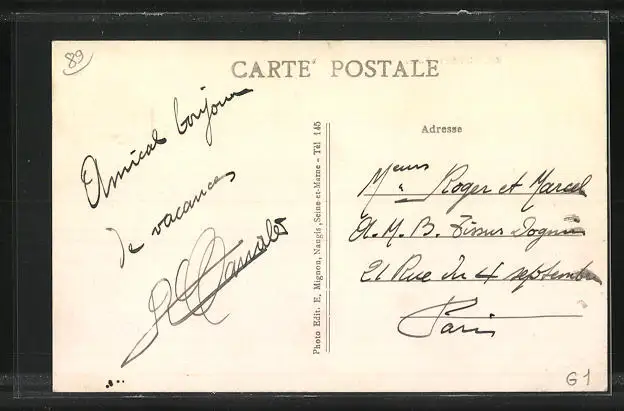 89
CARTE POSTALE
Amical bonjour
de vacances
Photo Edit. E. Mignon, Nangis, Seine-et-Marne - Tél 145
Adresse
Meurs Roger et Marcel
A. M. B. Tissus
21 Rue du 4 septembre
Paris
G1